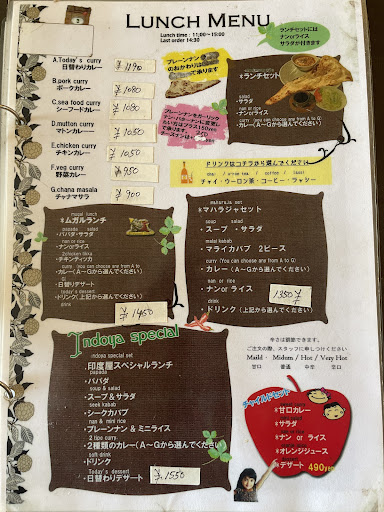 LUNCH MENU
Lunch time : 11:00~15:00
Last order 14:30
ランチセットには
ナンorライス
サラダが付きます
A.Today's curry
日替わりカレー
B.pork curry
ポークカレー
¥1080
C.sea food curry
シーフードカレー
¥1080
D.mutton curry
マトンカレー
¥1050
E.chicken curry
チキンカレー
¥1050
F.veg curry
野菜カレー
¥950
G.chana masala
チャナマサラ
¥900
プレーンナン
のおかわりは
で承ります
プレーンナンをガーリック
ナン・バターナンに変更し
たい方はプラス150yen
で承ります。
*ランチセット
salad
・サラダ
nan or rice
・ナンorライス
curry (you can choose any from A to G)
・カレー(A~Gから選んでください)
ドリンクはコチラから選んでください
chai / wooron tea / coffee / lassi
チャイ・ウーロン茶・コーヒー・ラッシー
mugal lunch
*ムガルランチ
papada salad
・パパダ・サラダ
nan or rice
・ナンorライス
2chicken tikka
・チキンティッカ
curry (You can choose any from A to G)
・カレー(A~Gから選んでください)
today's dessert
・日替りデザート
drink
・ドリンク(上記から選んでください)
¥1450
maharaja set
*マハラジャセット
soup salad
・スープ ・サラダ
malai kabab
・マライカバブ 2ピース
curry (You can choose any from A to G)
・カレー(A~Gから選んでください)
nan or rice
・ナン or ライス
1350¥
drink
・ドリンク(上記から選んでください)
Indoya special
indoya special set
・印度屋スペシャルランチ
papada
・パパダ
soup & salad
・スープ&サラダ
seek kabab
・シークカバブ
nan & mini rice
・プレーンナン&ミニライス
2 tips curry
・2種類のカレー(A~Gから選んでください)
soft-drink
・ドリンク
Today's dessert
・日替わりデザート
¥1550
辛さは調節できます。
ご注文の際、スタッフに申しつけください
Maild・ Midum / Hot / Very Hot
甘口 普通 中辛 辛口
チャイルドセット
*甘口カレー
*サラダ
*ナン or ライス
*オレンジジュース
*デザート 490yen